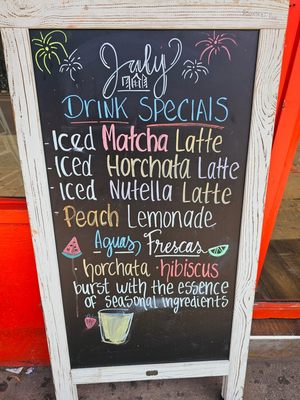 July
Drink Specials
- Iced Matcha Latte
- Iced Horchata Latte
- Iced Nutella Latte
- Peach Lemonade
Aguas Frescas
- horchata - hibiscus
burst with the essence
of seasonal ingredients